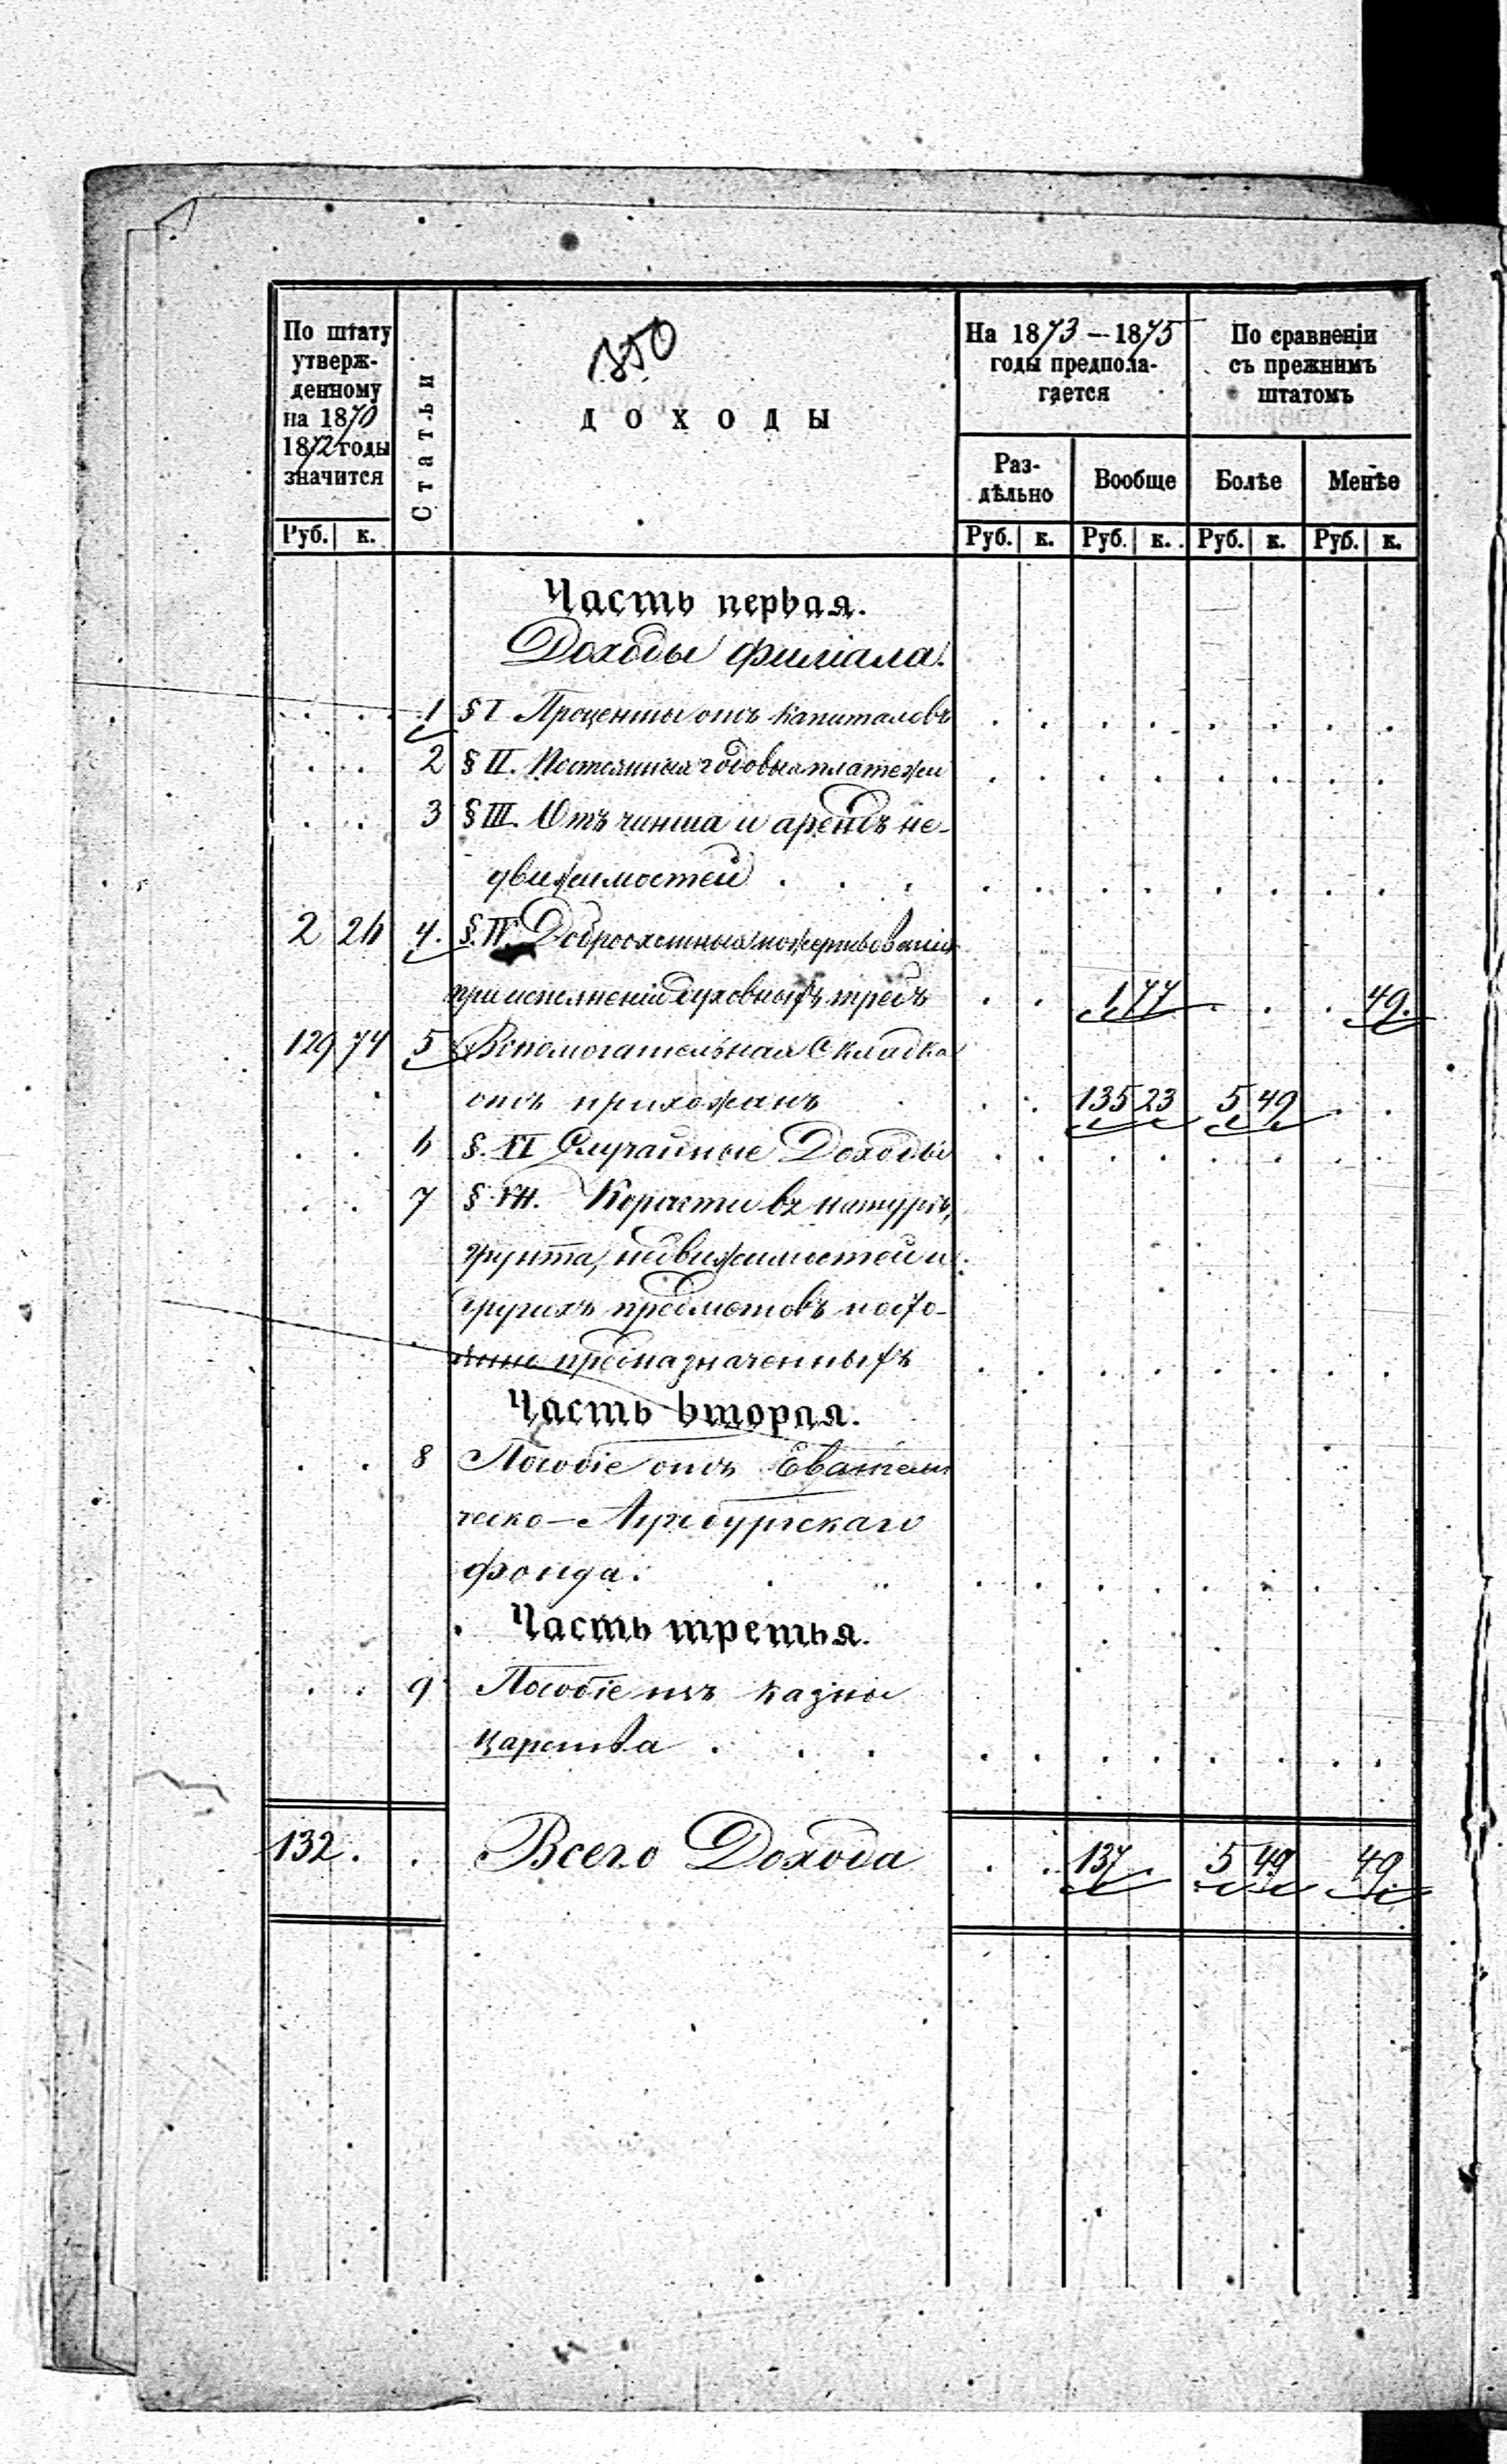 350
По штату утверж-денному на 1870 1872 годы значится
Статьи
ДОХОДЫ
На 1873 – 1875 годы предпола-гается
По сравненіи съ прежнимъ штатомъ
Раз-дѣльно Вообще Болѣе Менѣе
Руб. к. Руб. к. Руб. к. Руб. к. Руб. к.
Часть первая.
Доходы филіала.
1 § I. Проценты отъ капиталовъ
2 § II. Постоянныя годовыя платежи
3 § III. Отъ чинша и арендъ не-
движимостей . . .
2 26 4. § IV. Доброохотныя пожертвованія
при исполненіи духовныхъ требъ 1 77 49.
129 74 5 Вспомогательная складка
отъ прихожанъ 135 23 5 49
6 §. VI Случайные Доходы
7 § VII. Корысти въ натурѣ,
грунта, недвижимостей и
другихъ предметовъ
предназначенныхъ
Часть вторая.
8 Пособіе отъ Евангели
ческо-Аугсбургскаго
фонда.
Часть третья.
9 Пособіе изъ казны
царства . . .
132 . . Всего Дохода 137 . 5 49 49